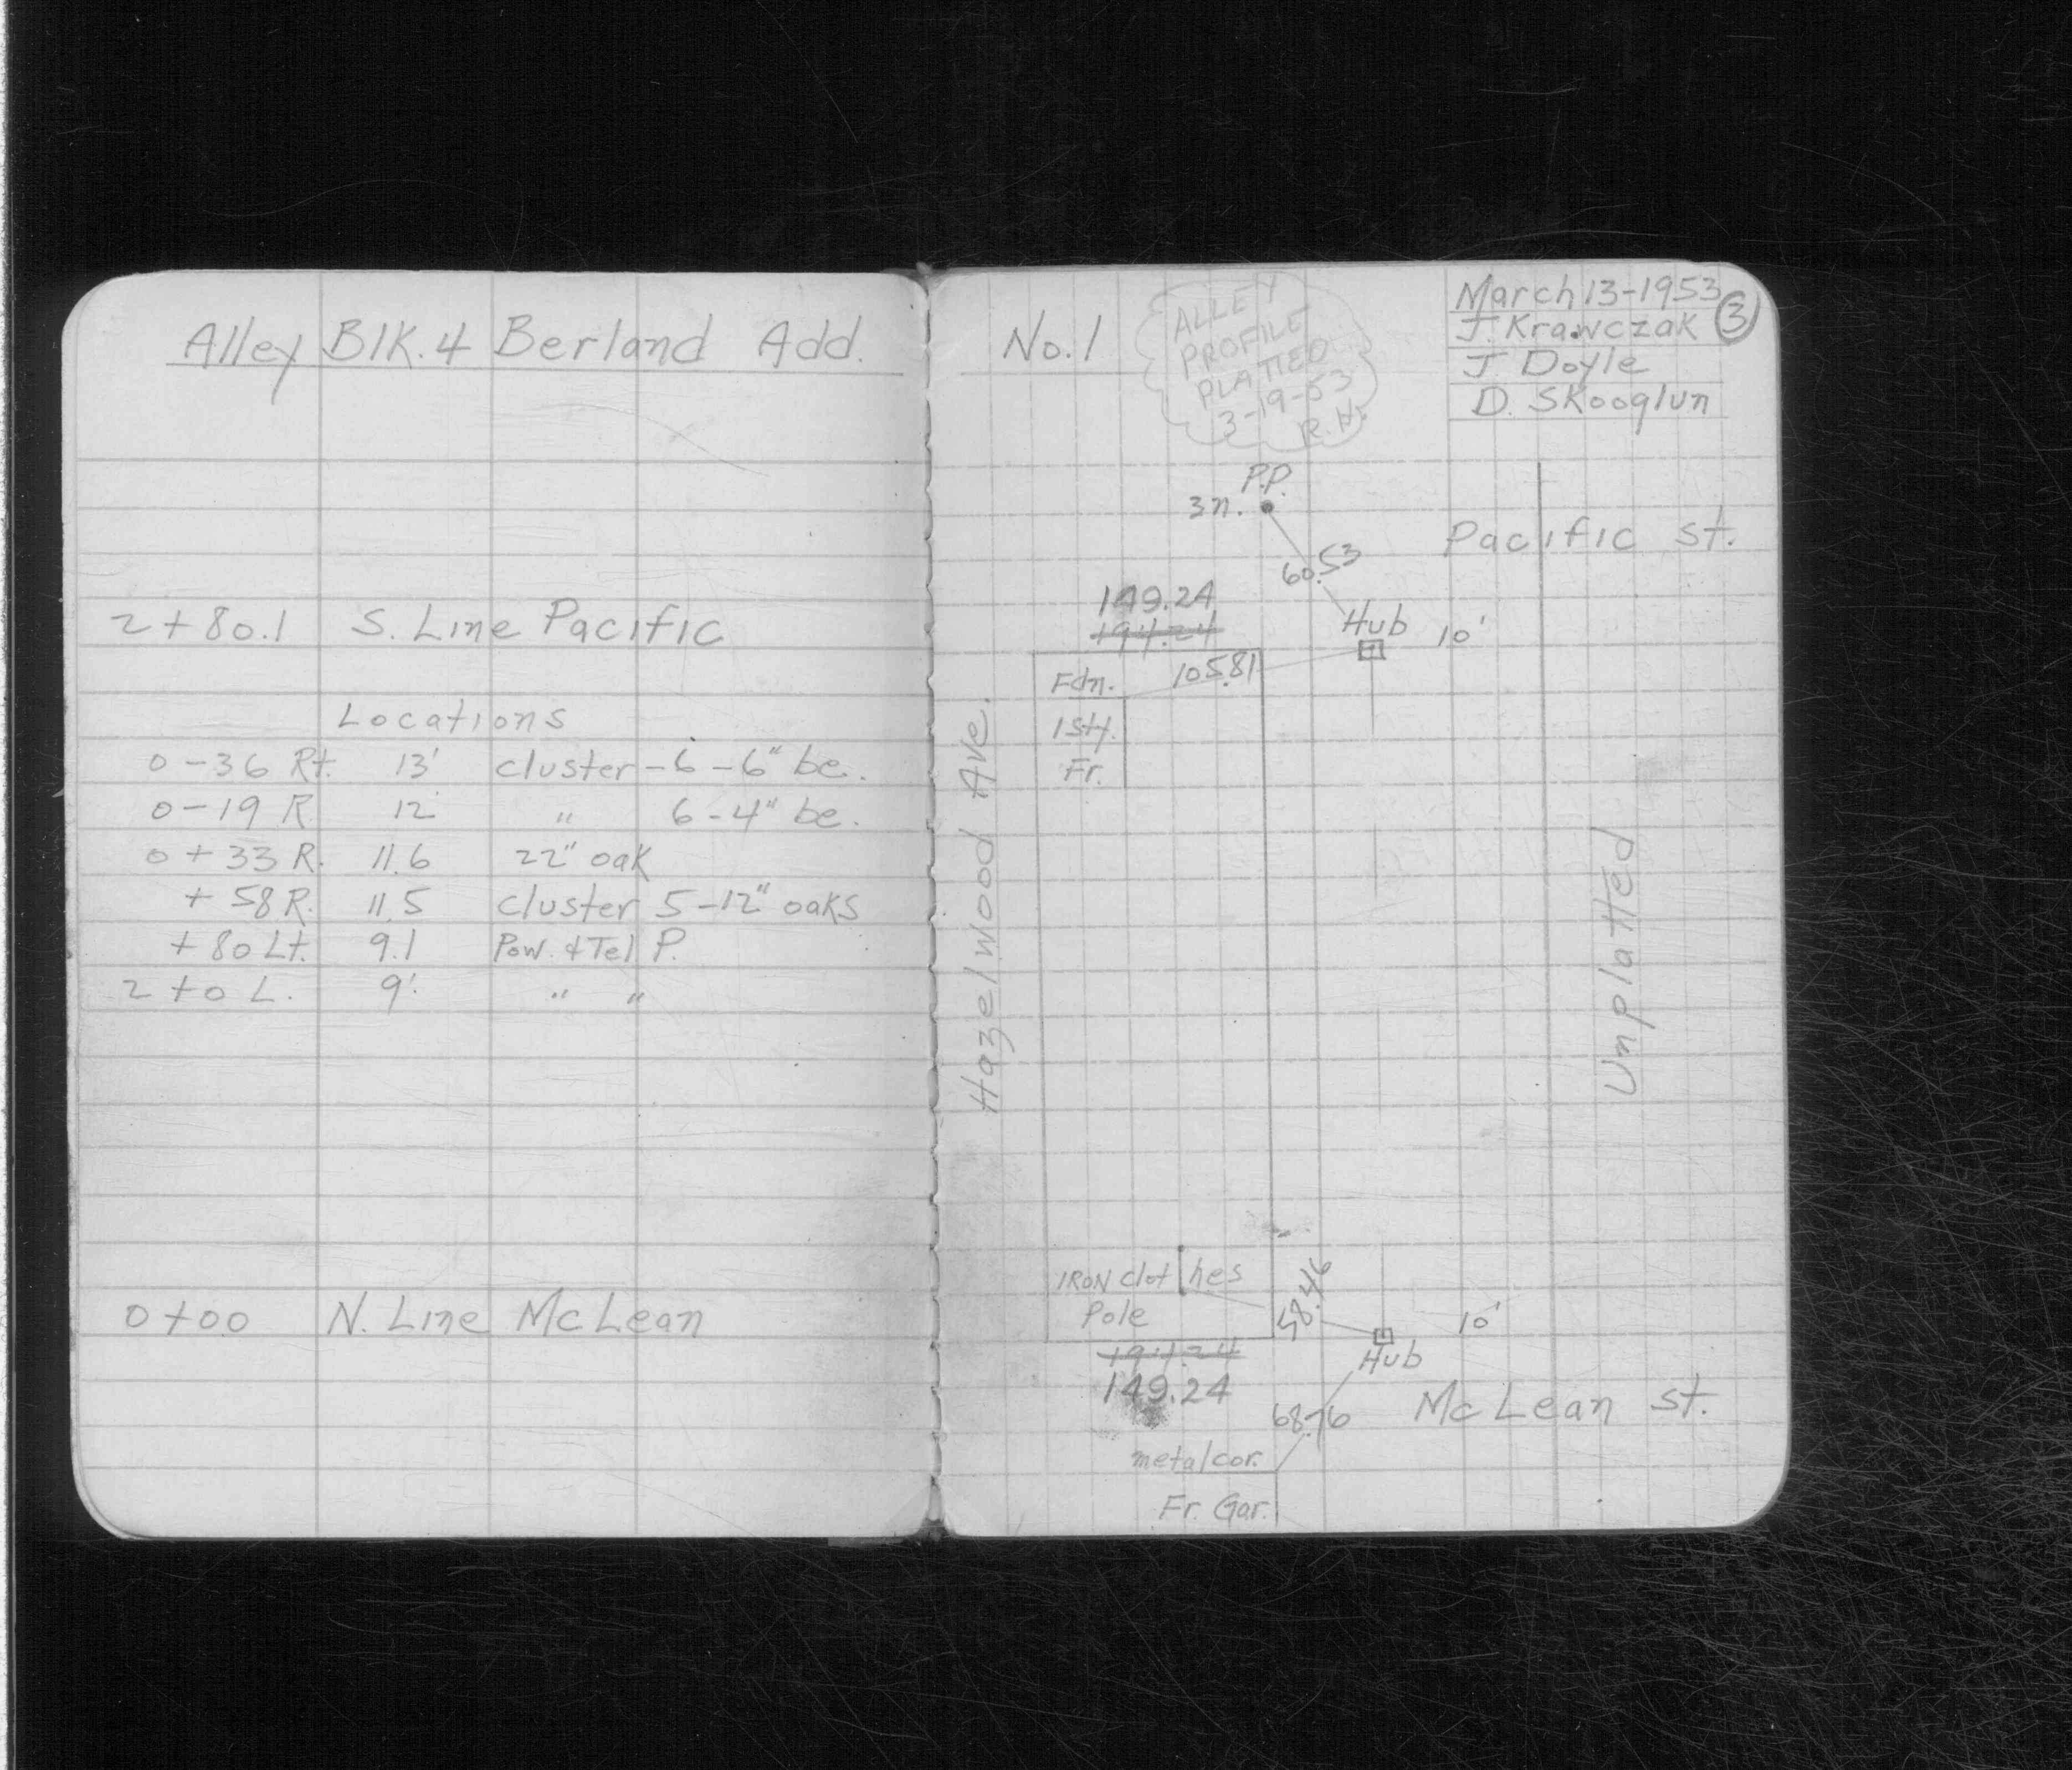 Alley Blk. 4 Berland Add.
2+80.1 S. Line Pacific
Locations
0-36 Rt. 13' cluster-6-6" be.
0-19 R 12 " 6-4" be.
0+33 R. 11.6 22" oak
+58 R. 11.5 cluster 5-12" oaks
+80 Lt. 9.1 Pow. & Tel P.
2+0 L. 9' " "
0+00 N. Line McLean
No. 1
ALLEY
PROFILE
PLATTED
3-19-53
R.H.
March 13-1953
3
J. Krawczak
J Doyle
D. Skooglun
P.P.
3n.
Pacific St.
60.53
149.24
194.24
Hub 10'
Fdn. 105.81
1st.
Fr.
Hazelwood Ave.
Unplatted
IRON clothes
Pole
58.46
10'
194.24
Hub
149.24
68.76
McLean St.
metal cor.
Fr. Gar.